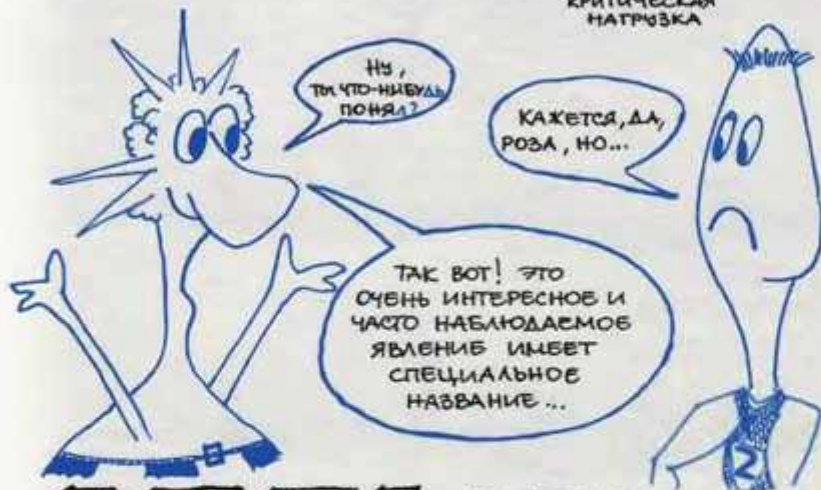 КРИТИЧЕСКАЯ
НАГРУЗКА
НУ,
ТЫ ЧТО-НИБУДЬ
ПОНЯЛ?
КАЖЕТСЯ, ДА,
РОЗА, НО...
ТАК ВОТ! ЭТО
ОЧЕНЬ ИНТЕРЕСНОЕ И
ЧАСТО НАБЛЮДАЕМОЕ
ЯВЛЕНИЕ ИМЕЕТ
СПЕЦИАЛЬНОЕ
НАЗВАНИЕ...
2